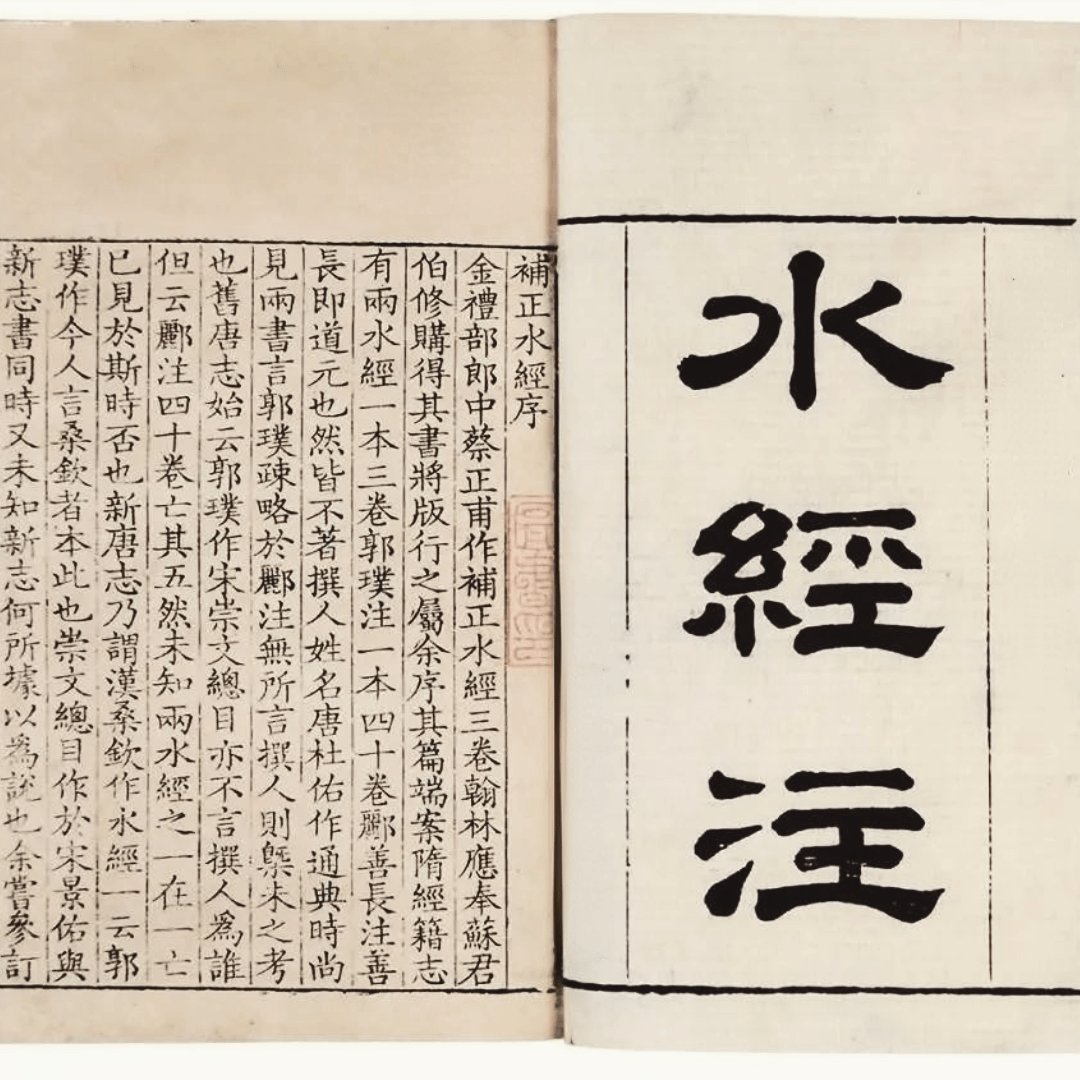 水經注
補正水經序
金禮部郎中蔡正甫作補正水經三卷翰林應奉蘇君
伯修購得其書將版行之屬余序其篇端案隋經籍志
有兩水經一本三卷郭璞注一本四十卷酈善長注善
長即道元也然皆不著撰人姓名唐杜佑作通典時尚
見兩書言郭璞疎略於酈注無所言撰人則槩未之考
也舊唐志始云郭璞作宋崇文總目亦不言撰人爲誰
但云酈注四十卷亡其五然未知兩水經之一在一亡
已見於斯時否也新唐志乃謂漢桑欽作水經一云郭
璞作今人言桑欽者本此也崇文總目作於宋景佑與
新志書同時又未知新志何所據以爲説也余嘗參訂